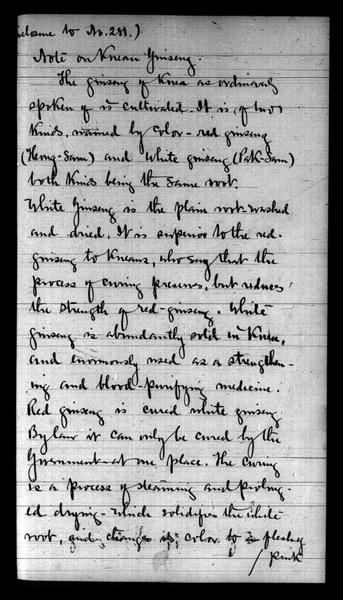 closure to No. 211.)
Note on Korean Ginseng.
The ginseng of Korea as ordinarily
spoken of is cultivated. It is of two
kinds, named by color - red ginseng
(Hong-Sam) and White ginseng (Pak-Sam)
both kinds being the same root.
White Ginseng is the plain root washed
and dried. It is superior to the red
ginseng to Koreans, who say that the
process of curing preserves, but reduces
the strength of red-ginseng. White
ginseng is abundantly sold in Korea,
and enormously used as a strengthen-
ing and blood-purifying medicine.
Red ginseng is cured white ginseng
By law it can only be cured by the
Government at one place. The curing
is a process of steaming and prolong-
ed drying - which solidifies the white
root, and changes its color to a fleshy
pink